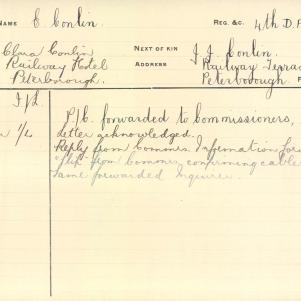 NAME E Conlin REG. &C. 4th D.A
Clara Conlin NEXT OF KIN J. J. Conlin.
Railway Hotel ADDRESS Railway Terrace
Peterborough. Peterborough
P/C. forwarded to Commissioners,
Letter acknowledged.
Reply from Commrs. Information
Slip from Commrs confirming cable
Same forwarded Enquirer.